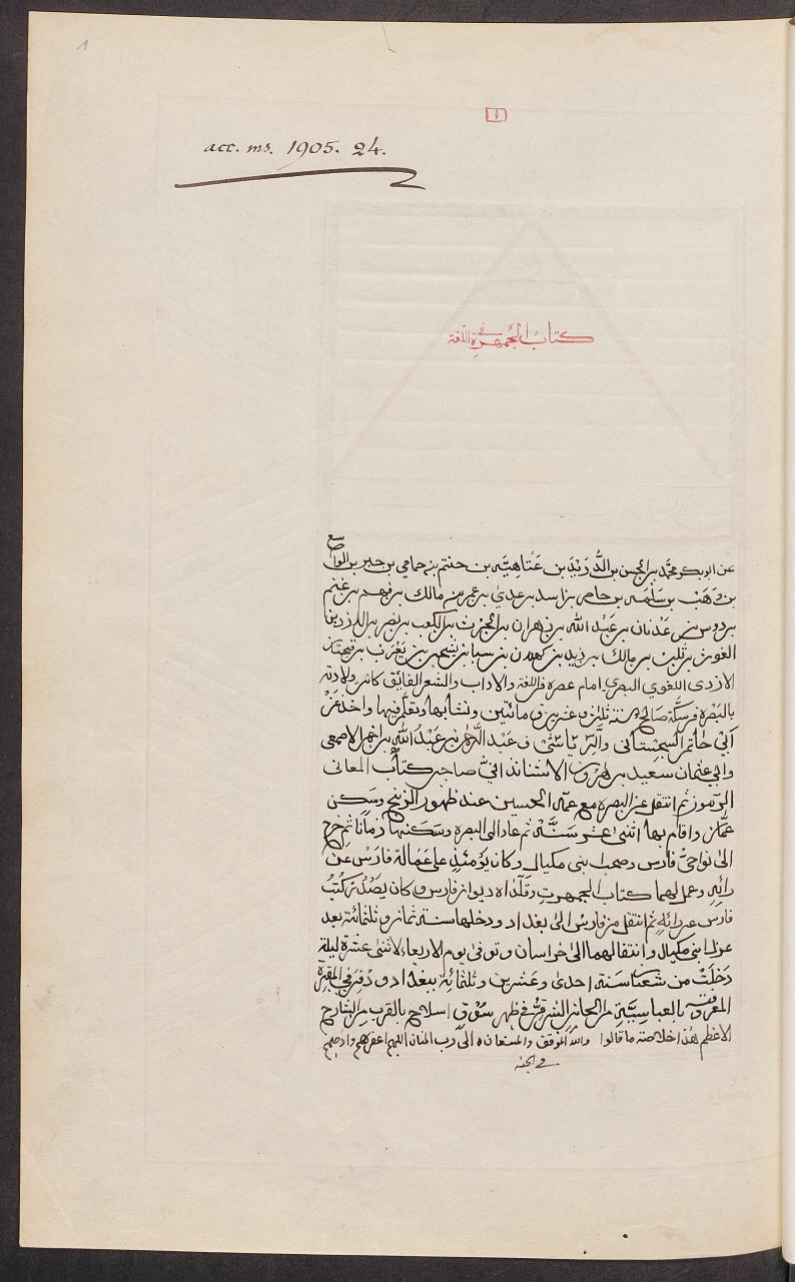 1
١
acc. ms. 1905. 24.
كتاب الجمهرة في اللغة
عن ابو بكر محمد بن الحسن بن الدُّرَيْدَ بن عَتاهِيَّه بن حنتم بن حمامي بن جبر بن الواسع
بن وَهَبْ بن سَلَمه بن حاضر بن اسد بن عدي بن عمر بن مالك بن فهم بن غنم
بن دوس بن عَدْنان بن عَبْد الله بن زهران بن الكعب بن الحرث بن الكعب بن نصر بن الازد بن
الغوث بن نبت بن مالك بن زيد بن كهلان بن سبا بن يشجب بن يَعْرَب بن قحطان
الازدى اللغوي البصري امام عصره في اللغة والاداب والشعر الفائق كانت ولادته
بالبَصْره في سكّة صَالح سنة ثلث وعشرين ومائتين ونشأ بها وتعلّم فيها واخذ عَنْ
آبي حاتم السجستاني والرّياشي وعَبد الرَّحمن بن عَبْدُ الله بن اخي الاصمعي
وابي عثمان سعيد بن هٰرون الاشناندانيّ صاحب كتاب المعانى
ثم انتقل عن البصره مع عمه الحسين عند ظهور الزنج وسَكن
عمّان واقام بها اثنى عشر سَنَة ثم عاد الى البصره وسَكنها زمانًا ثم خرج
الى نواحيّ فارس وصحب ابنى مكيال وكان يَؤمَئذٍ على عَمَالة فارَسْ عَنْ
رائِهِ وعمل لهما كتاب الجمهرت وقلّداه ديوان فارس وكان يَصْدُر كُتُبُ
فارس عن رائِهِ ثم انتقل من فارس الى بغداد ودخلها سنة ثمان وثلثمائة بعد
عزل ابنى مكيال وانتقالهما الى خراسان وتوفى يوم الاربعاء لاثنى عشرة ليلة
دَخلَتْ من شعبان سَنَة احدى وعَشرين وثلثمائة ببغداد ودُفِنَ في المقبرة
المعروفة بالعباسيّة من الجانب الشرقىّ في ظهر سُوْق السلاح بالقرب من الشارع
الاعْظم هٰذا خلاصته ما قالوا والله الموفق والمستعان الى رب المنان اللهم اغفر لهم وادخلهم
في الجنه